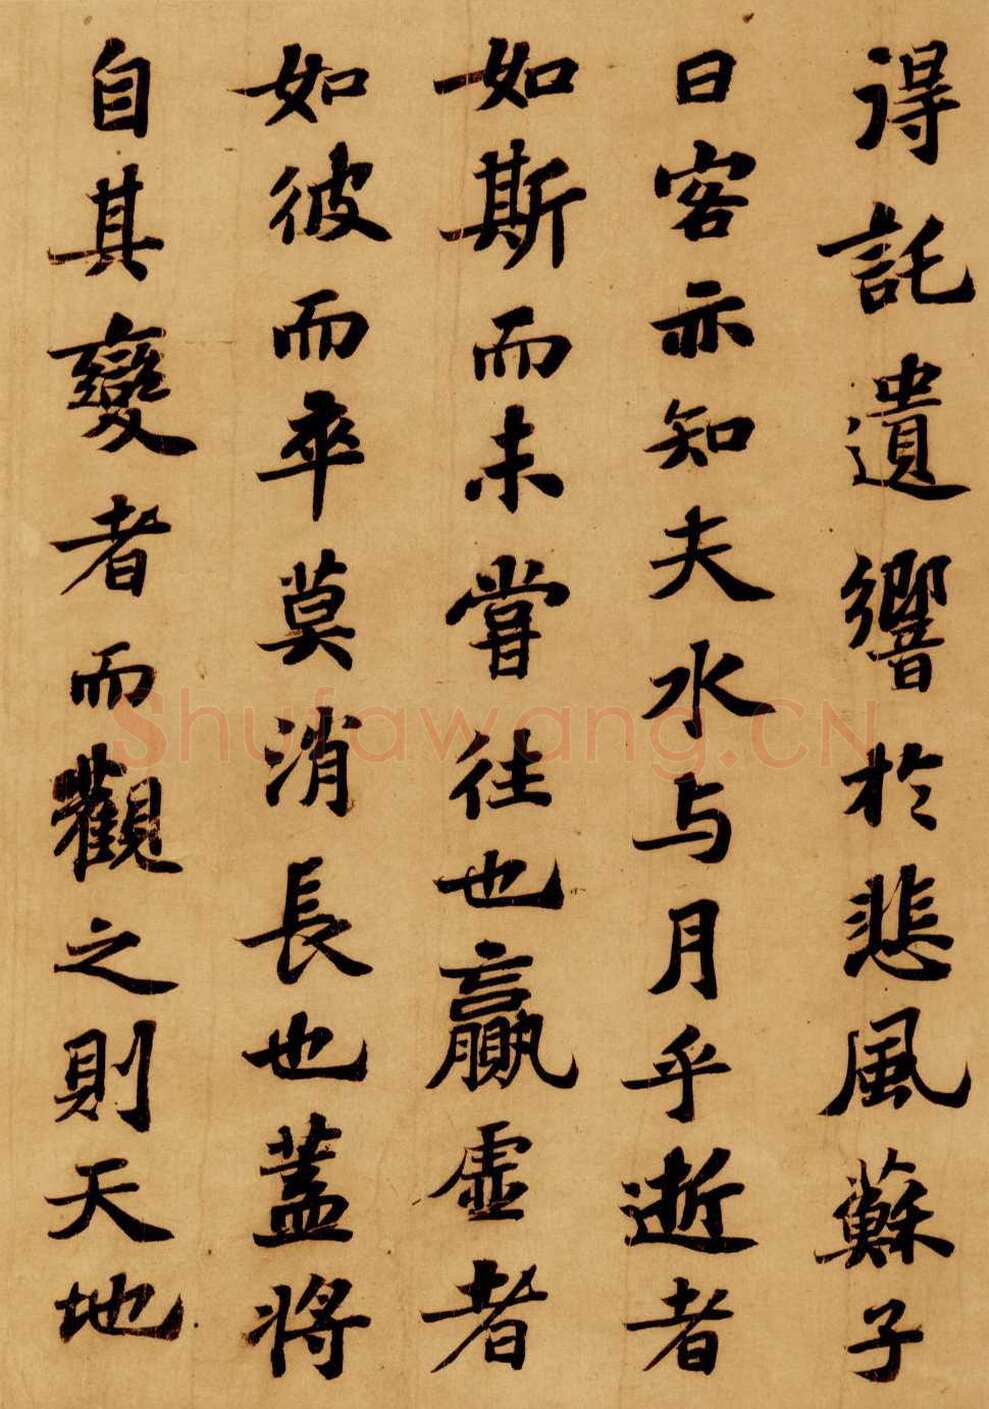 得託遺響於悲風蘇子
曰客亦知夫水与月乎逝者
如斯而未嘗往也贏虛者
如彼而卒莫消長也蓋將
自其變者而觀之則天地
Shufawang.CN